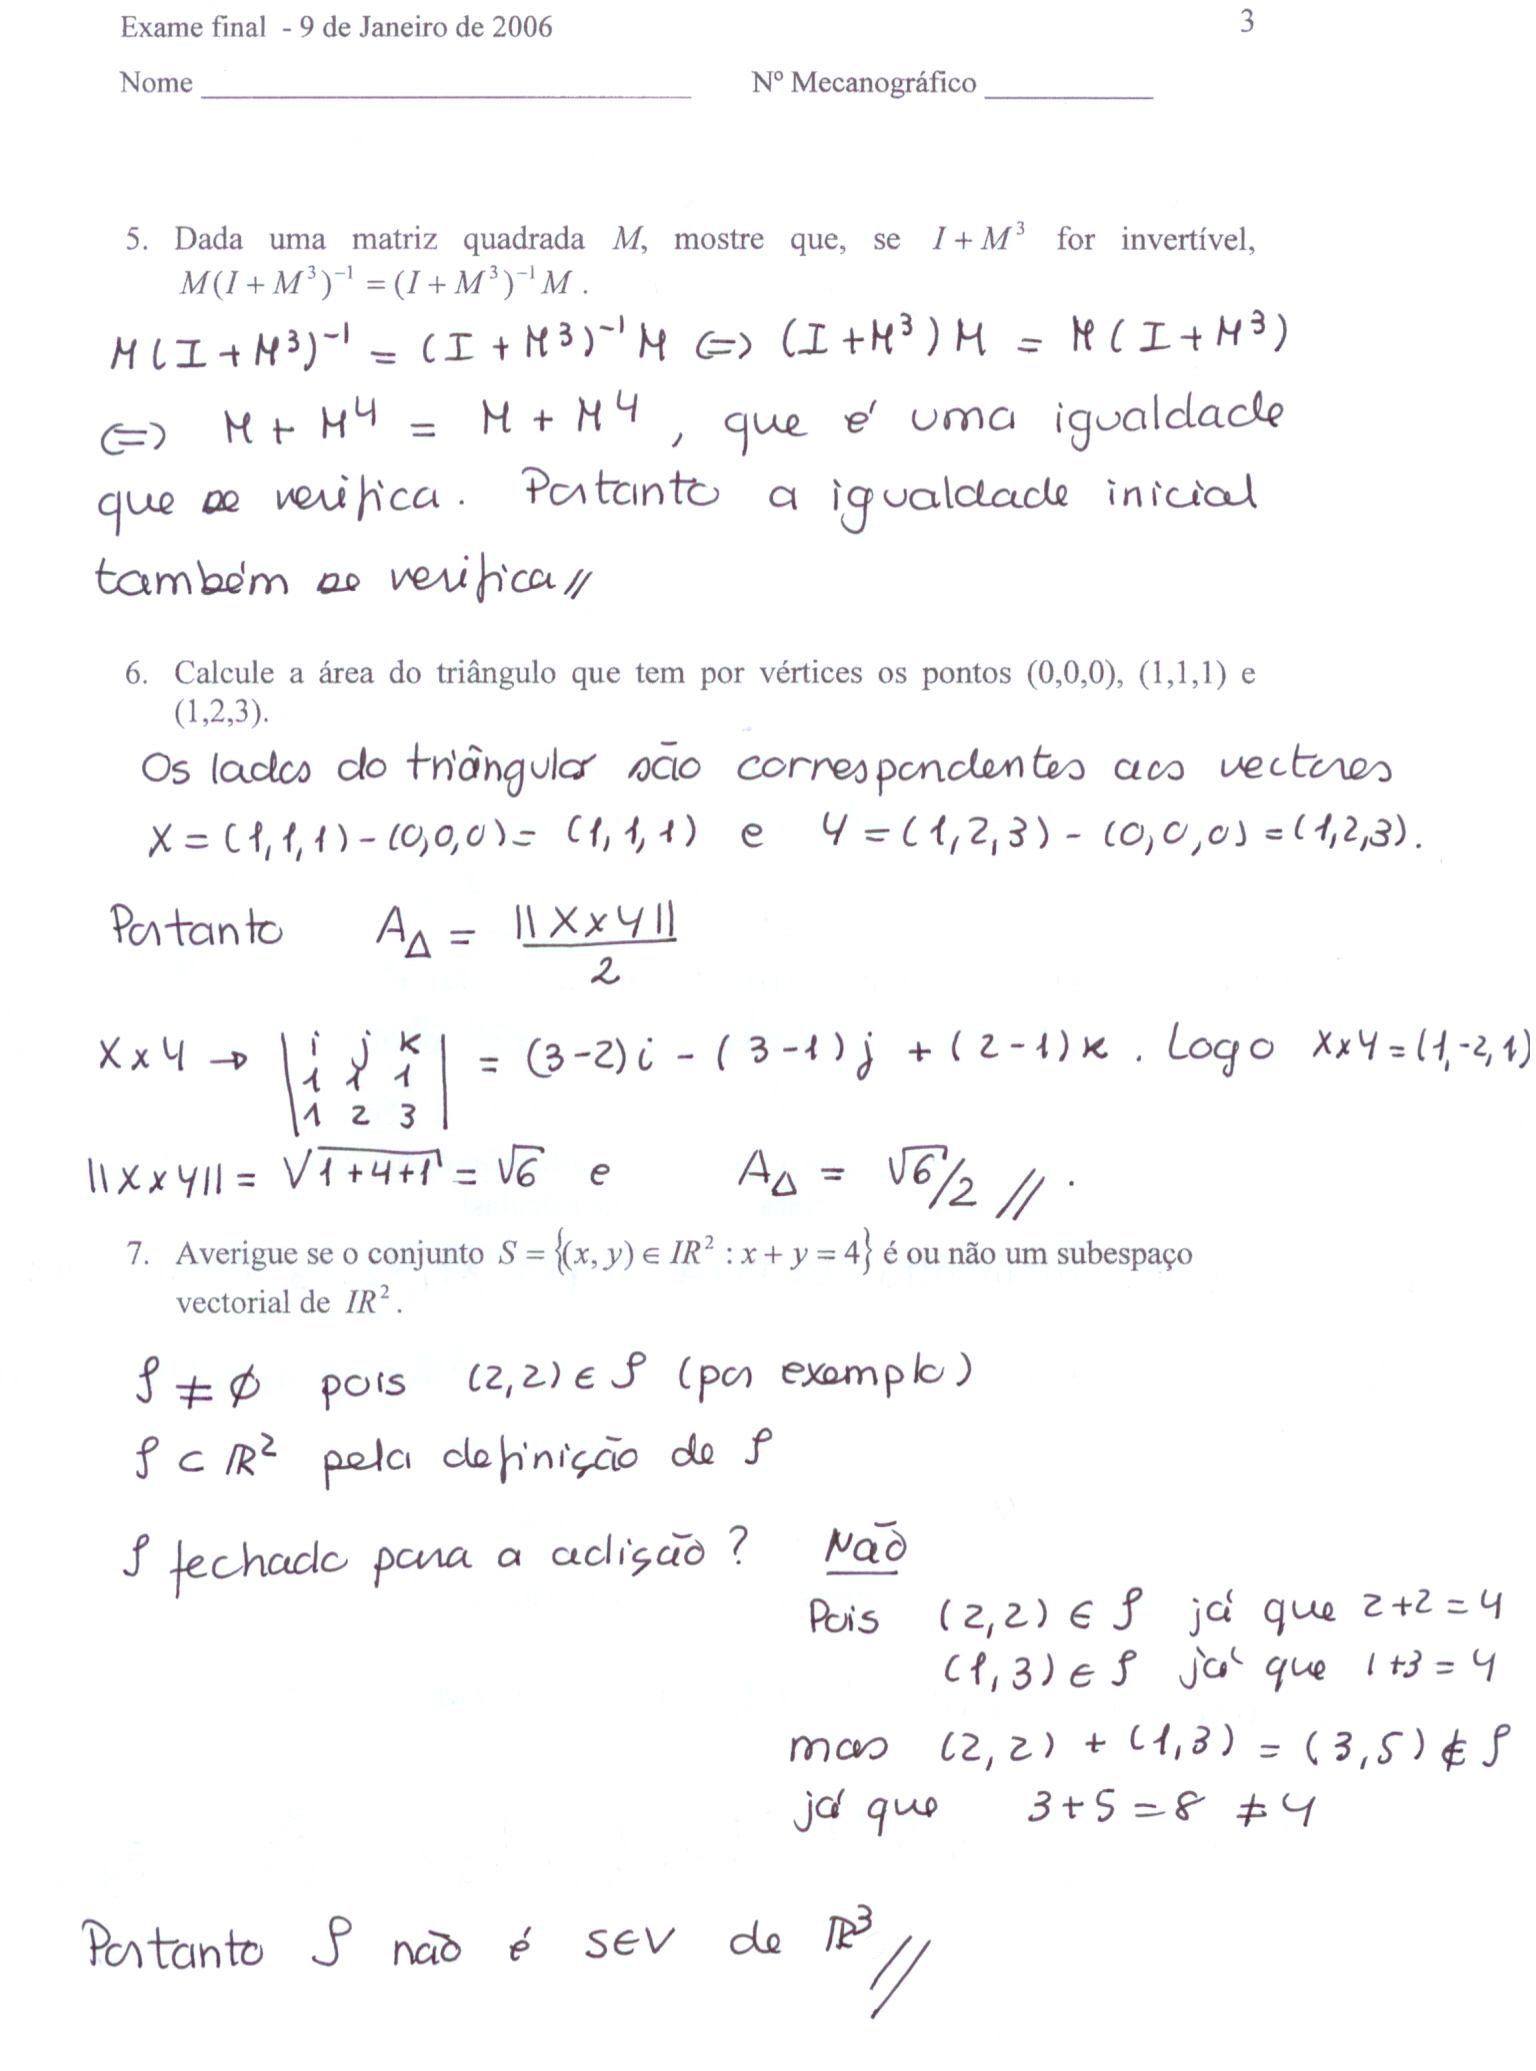 Exame final - 9 de Janeiro de 2006 3
Nome ______________ Nº Mecanográfico __________
5. Dada uma matriz quadrada M, mostre que, se I + M³ for invertível,
M(I + M³)⁻¹ = (I + M³)⁻¹ M .
M(I + M³)⁻¹ = (I + M³)⁻¹ M ⇔ (I + M³) M = M (I + M³)
⇔ M + M⁴ = M + M⁴ , que é uma igualdade
que se verifica. Portanto a igualdade inicial
também se verifica //
6. Calcule a área do triângulo que tem por vértices os pontos (0,0,0), (1,1,1) e
(1,2,3).
Os lados do triângulor são correspondentes aos vectores
X = (1,1,1) - (0,0,0) = (1,1,1) e Y = (1,2,3) - (0,0,0) = (1,2,3).
Portanto A_Δ = ||X x Y|| / 2
X x Y → | i j k ; 1 1 1 ; 1 2 3 | = (3-2)i - (3-1)j + (2-1)k . Logo X x Y = (1,-2,1)
||X x Y|| = √(1+4+1) = √6 e A_Δ = √6/2 // .
7. Averigue se o conjunto S = {(x, y) ∈ IR² : x + y = 4} é ou não um subespaço
vectorial de IR² .
S ≠ ∅ pois (2,2) ∈ S (por exemplo)
S ⊂ ℝ² pela definição de S
S fechado para a adição? Não
Pois (2,2) ∈ S já que 2+2 = 4
(1,3) ∈ S já que 1+3 = 4
mas (2,2) + (1,3) = (3,5) ∉ S
já que 3+5 = 8 ≠ 4
Portanto S não é SEV de ℝ³ //